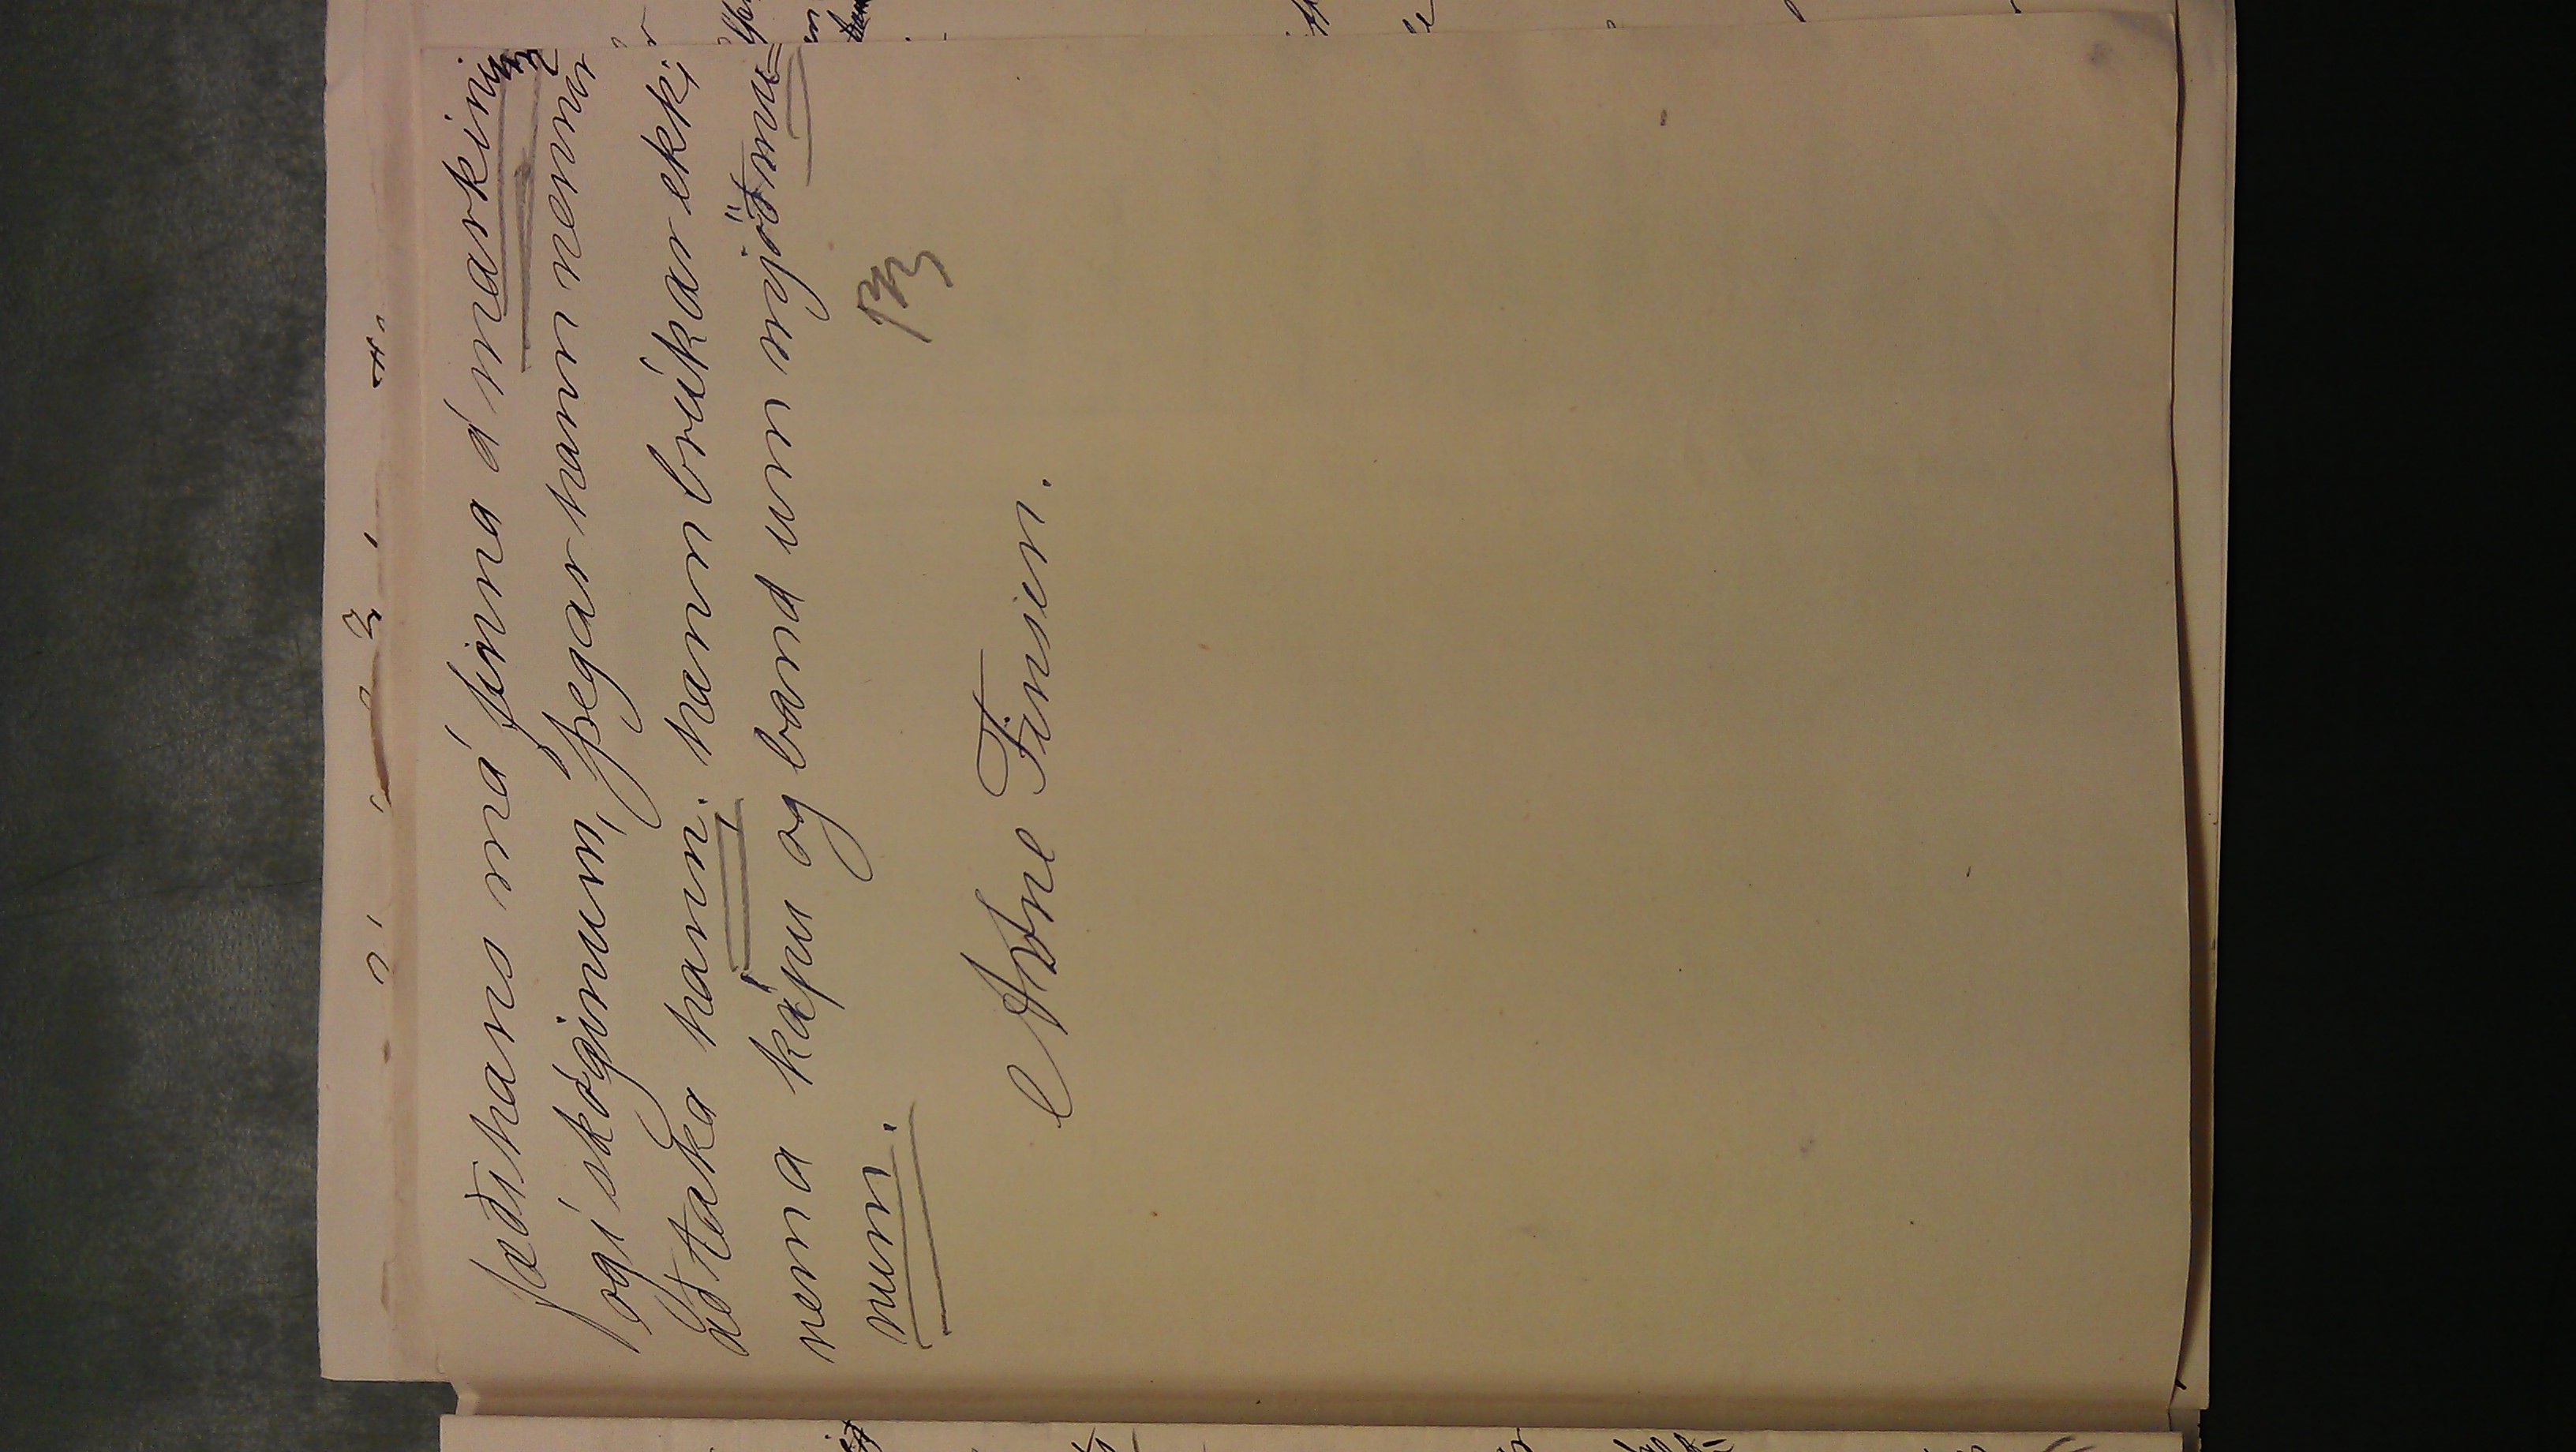 fæði hans má finna á mörkinni
og í skóginum, þegar hann nennir
að taka hann. hann brúkar ekki
nema kápu og band um mjöðmu=
num.
Arne Finsen.